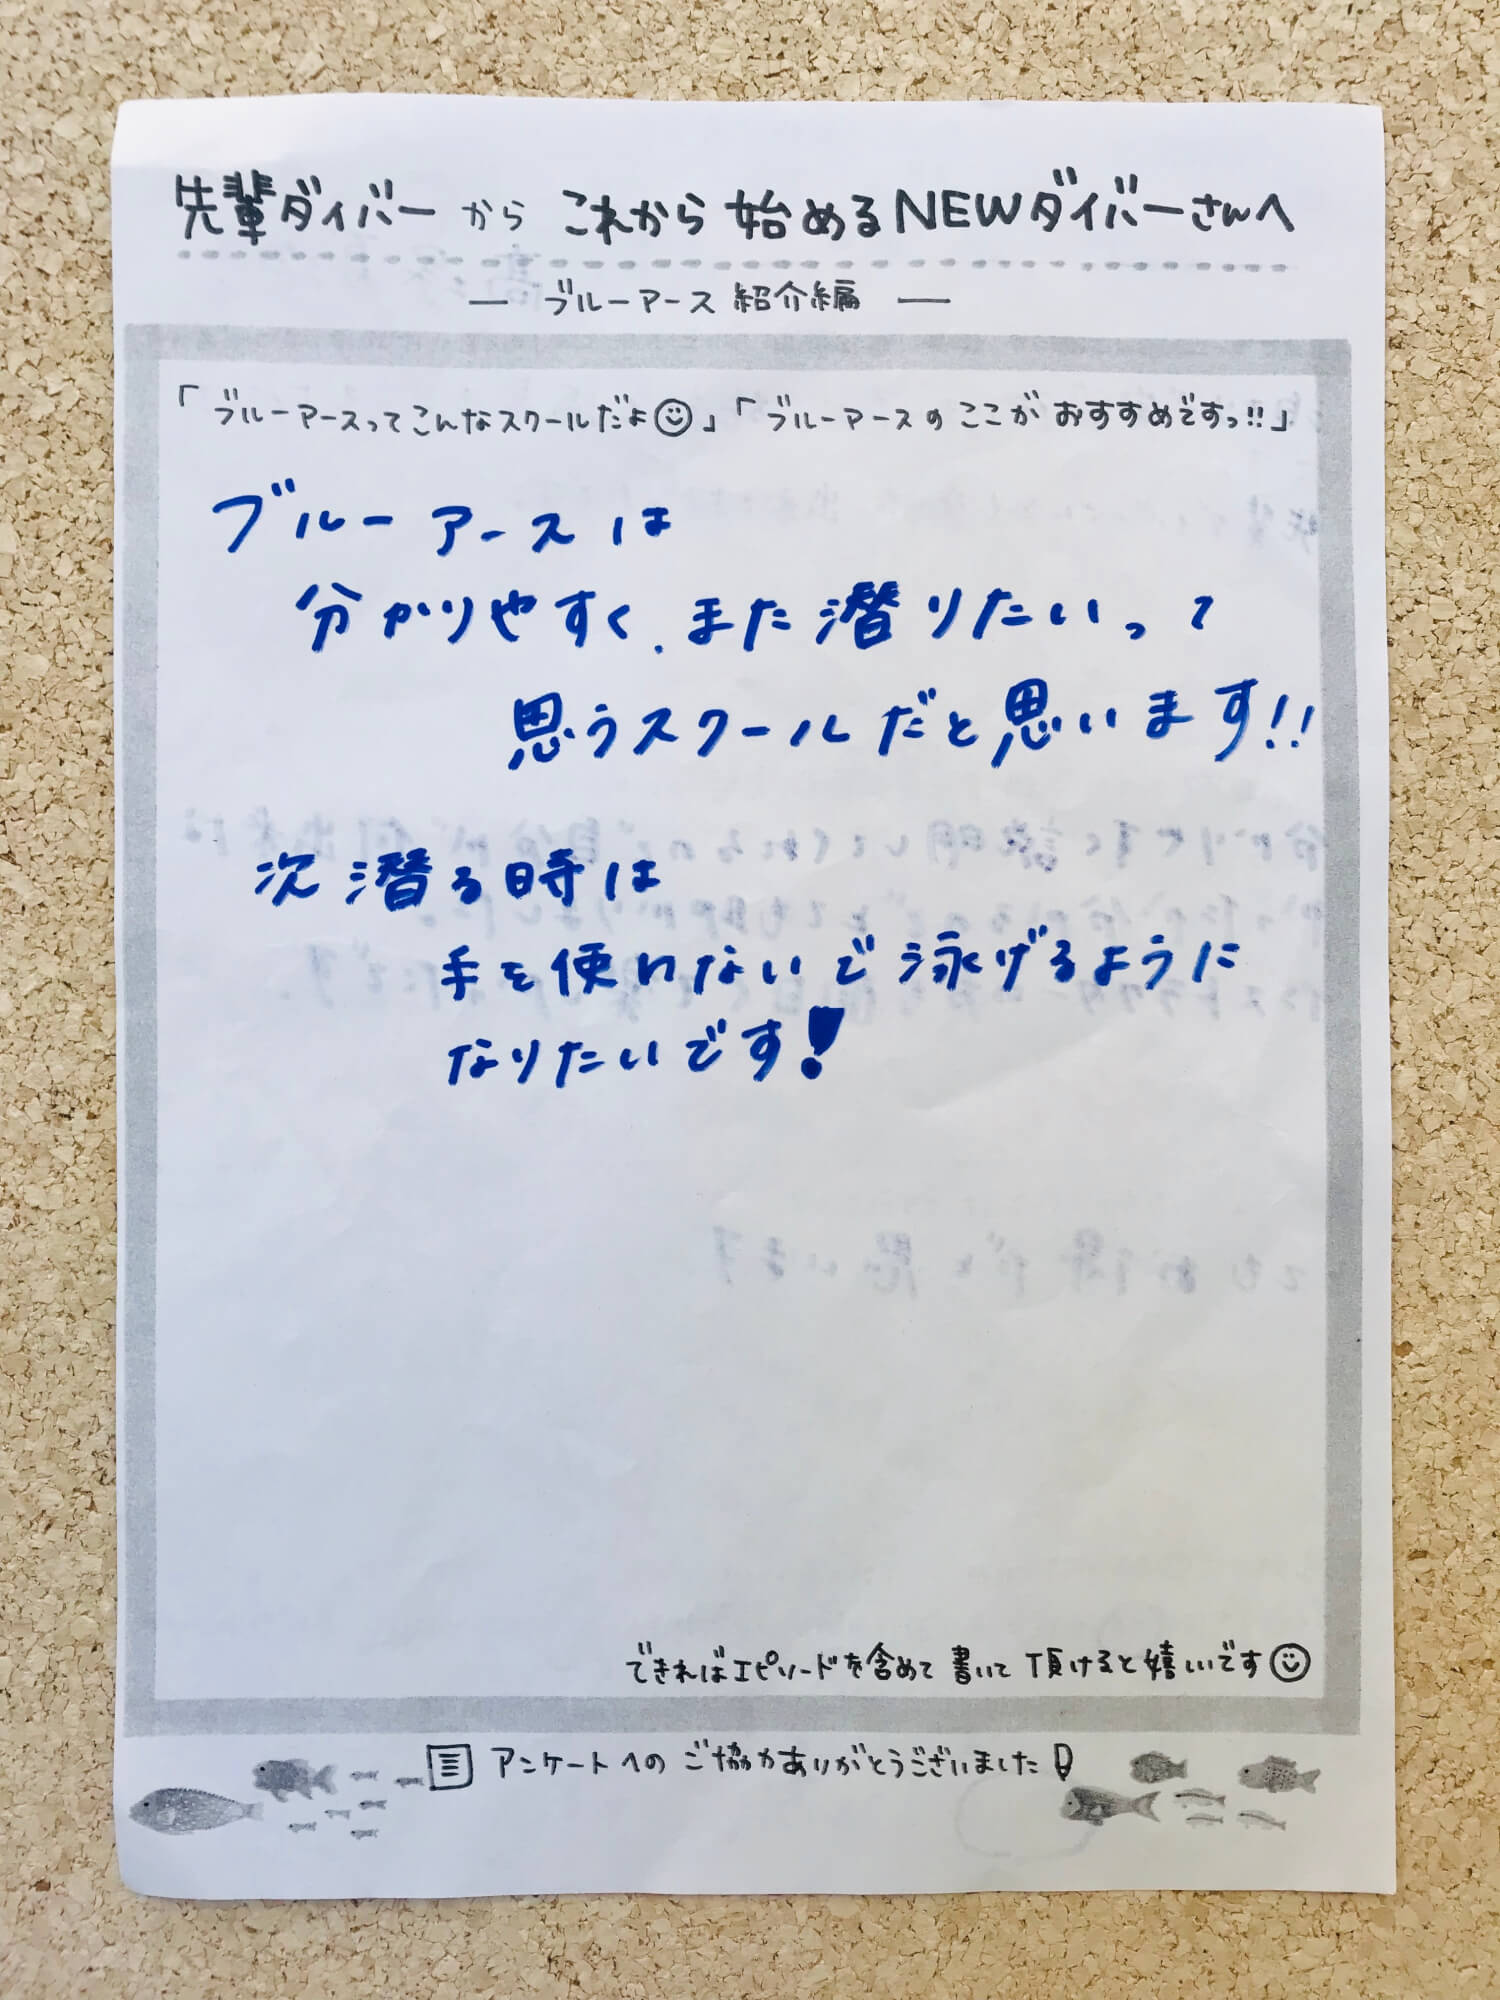 先輩ダイバーから これから始めるNEWダイバーさんへ
― ブルーアース紹介編 ―
「ブルーアースってこんなスクールだよ☺」「ブルーアースのここがおすすめですっ!!」
ブルーアースは
分かりやすく、また潜りたいって
思うスクールだと思います!!
次潜る時は
手を使わないで泳げるように
なりたいです!
できればエピソードを含めて書いて頂けると嬉しいです☺
アンケートへのご協力ありがとうございました